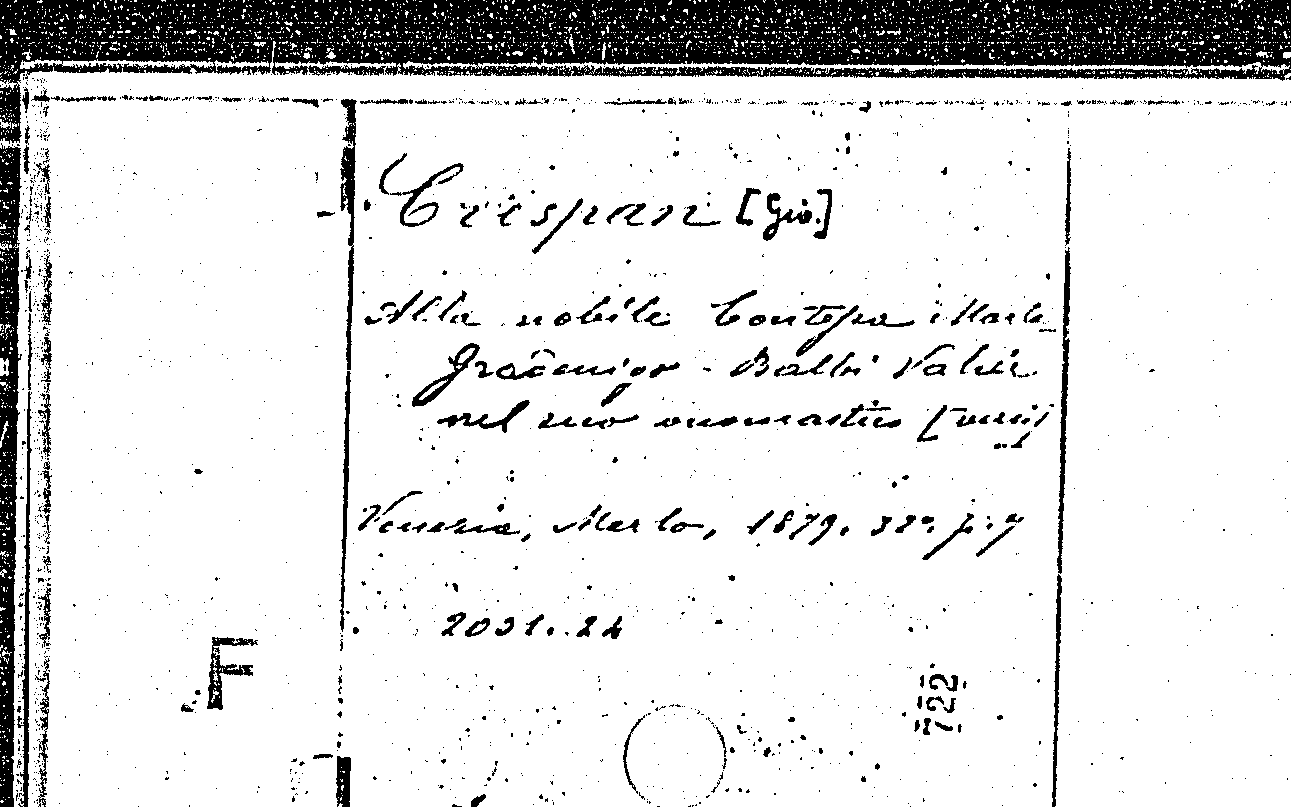 Crespan [Gio.]
Alla nobile Contessa Maria
Gradenigo - Balbi Valier
nel suo onomastico [versi]
Venezia, Merlo, 1879. 32º. p. 7
2031. 24
F
722